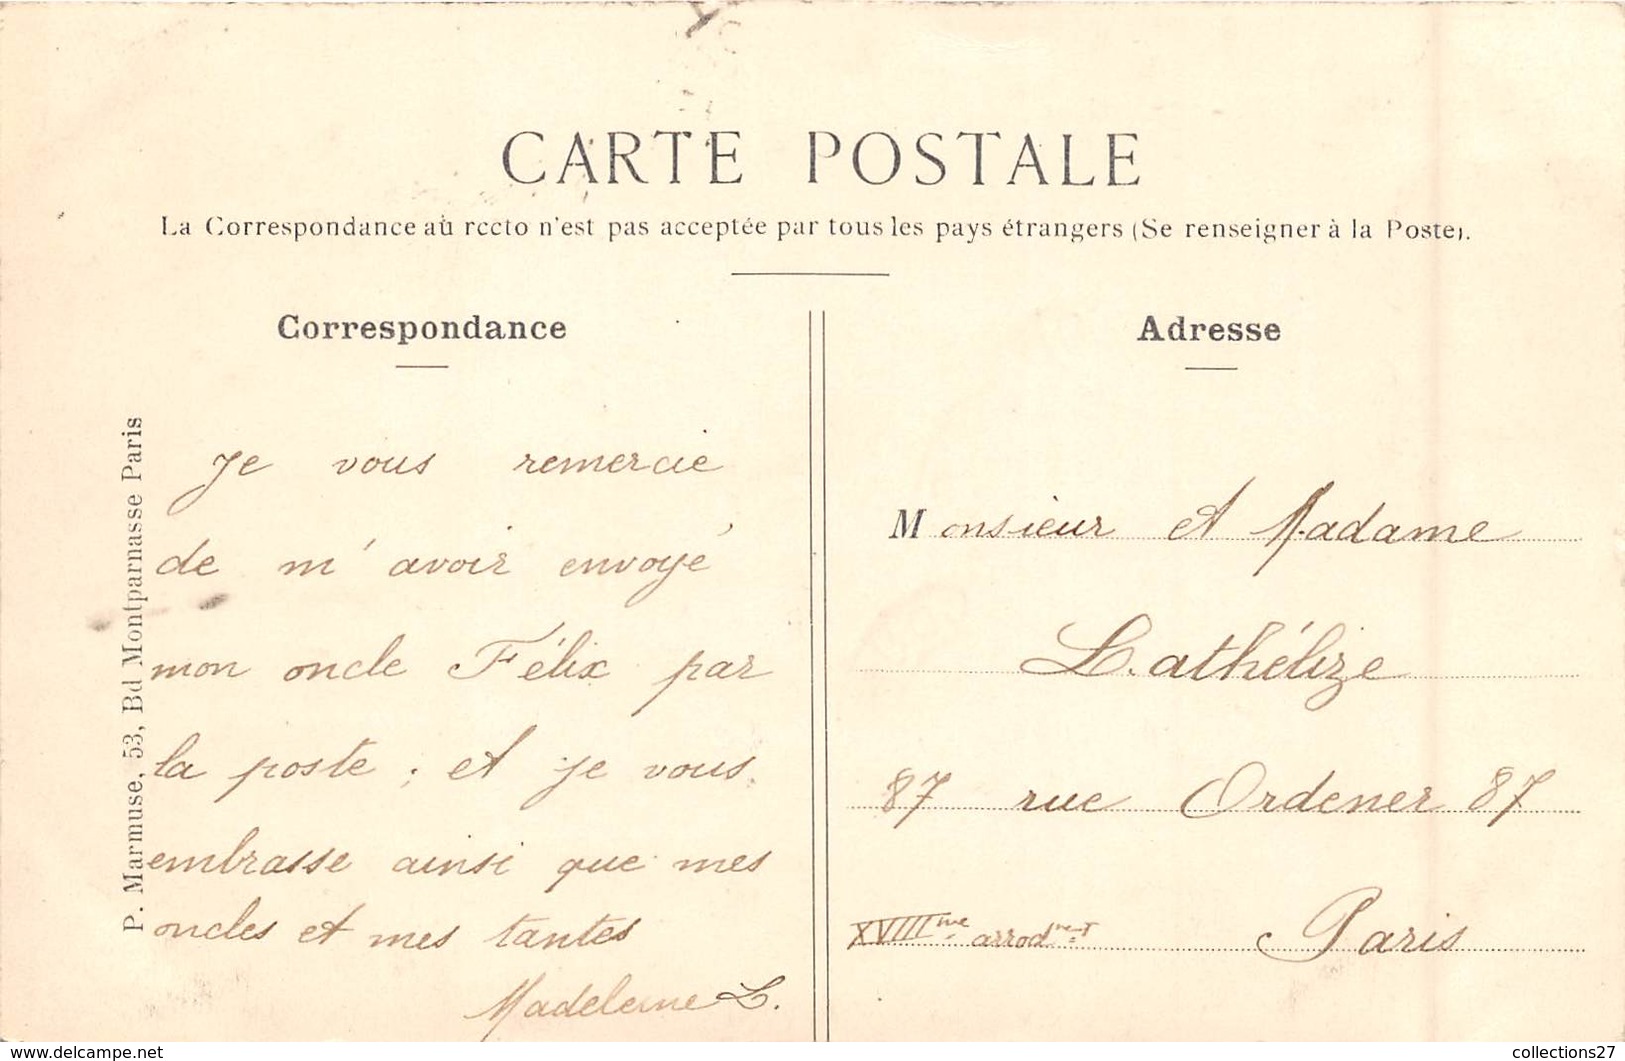 CARTE POSTALE
La Correspondance au recto n'est pas acceptée par tous les pays étrangers (Se renseigner à la Poste).
Correspondance
Je vous remercie
de m'avoir envoyé
mon oncle Félix par
la poste ; et je vous
embrasse ainsi que mes
oncles et mes tantes
Madeleine L.
P. Marmuse, 53, Bd Montparnasse Paris
Adresse
Monsieur et Madame
Lathélize
87 rue Ordener 87
XVIIIme arrodmt Paris
www.delcampe.net
collections27